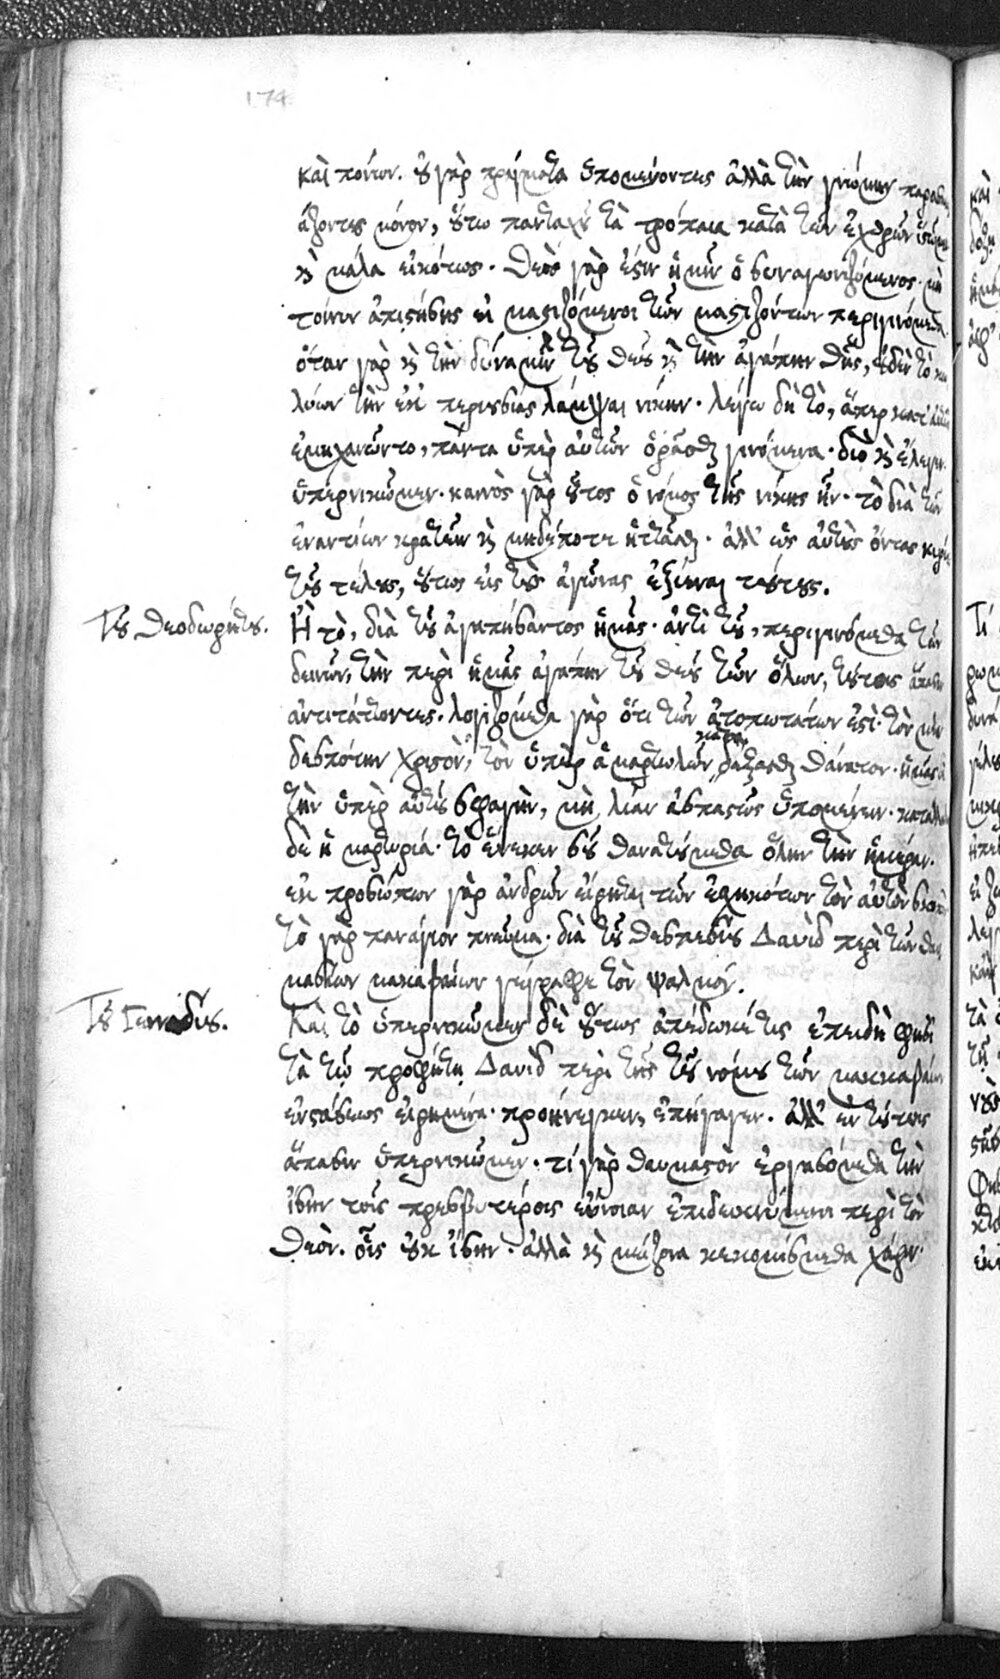 174
καὶ πόνων. οὐ γὰρ πράγματα ὑπομένοντες ἀλλὰ τὴν γνώμην
άζοντες μόνον, οὕτω πανταχοῦ τὰ τρόπαια κατὰ τῶν ἐχθρῶν
καὶ μάλα εἰκότως. Θεὸς γάρ ἐστιν ἡμῖν ὁ συναγωνιζόμενος. μὴ
τοίνυν ἀπιστήσῃς εἰ μαστιζόμενοι τῶν μαστιζόντων περιγινόμεθα.
ὅταν γὰρ καὶ τὴν δύναμιν τοῦ Θεοῦ καὶ τὴν ἀγάπην θῇς, οὐδὲν τὸ κω
λύων τὴν ἐκ περιουσίας λάμψαι νίκην. λέγω δὴ τὸ, ἅπερ κατ' αὐτῶν
ἐμηχανῶντο, πάντα ὑπὲρ αὐτῶν ὁρᾶσθαι γινόμενα. διὸ καὶ ἔλεγεν
ὑπερνικῶμεν. καινὸς γὰρ οὗτος ὁ νόμος τῆς νίκης ἦν. τὸ διὰ τῶν
ἐναντίων κρατεῖν καὶ μηδέποτε ἡττᾶσθαι. ἀλλ' ὡς αὐτοὺς ὄντας κυρίους
τοῦ τέλους, οὕτως εἰς τοὺς ἀγῶνας ἐξιέναι τούτους.
Τοῦ Θεοδωρήτου. Ἢ τὸ, διὰ τοῦ ἀγαπήσαντος ἡμᾶς. ἀντὶ τοῦ, περιγινόμεθα τῶν
δεινῶν, τὴν περὶ ἡμᾶς ἀγάπην τοῦ Θεοῦ τῶν ὅλων, τούτοις ἅπασιν
ἀντιτάττοντες. λογιζόμεθα γὰρ ὅτι τῶν ἀτοπωτάτων ἐστὶ. τὸν μὲν
δεσπότην Χριστὸν, τὸν ὑπὲρ ἁμαρτωλῶν δέξασθαι θάνατον. ἡμᾶς δὲ
τὴν ὑπὲρ αὐτοῦ σφαγὴν, μὴ λίαν ἀσπαστῶς ὑπομένειν.
δὲ ἡ μαρτυρία. τὸ ἕνεκεν σοῦ θανατούμεθα ὅλην τὴν ἡμέραν.
ἐκ προσώπων γὰρ ἀνδρῶν εἴρηται τῶν ἐσχηκότων τὸν αὐτὸν σκοπόν
τὸ γὰρ πανάγιον πνεῦμα. διὰ τοῦ θεσπεσίου Δαυὶδ περὶ τῶν θαυ
μασίων μακαβαίων γέγραφε τὸν ψαλμόν.
Τοῦ Γενναδίου. Καὶ τὸ ὑπερνικῶμεν δὲ οὕτως ἀπέδωκέ τις ἐπειδὴ φησὶ
τὰ τῷ προφήτῃ Δαυὶδ περὶ τῆς τοῦ νόμου τῶν μακκαβαίων
ἐνστάσεως εἰρημένα. προήνεγκεν, ἐπήγαγεν. ἀλλ' ἐν τούτοις
ἅπασιν ὑπερνικῶμεν. τί γὰρ θαυμαστὸν ἐργασόμεθα τὴν
ἴσην τοῖς πρεσβυτέροις εὔνοιαν ἐπιδεικνύμενοι περὶ τὸν
Θεὸν. οἷς οὐκ ἴσην. ἀλλὰ καὶ μείζονα κεκομίσμεθα χάριν.